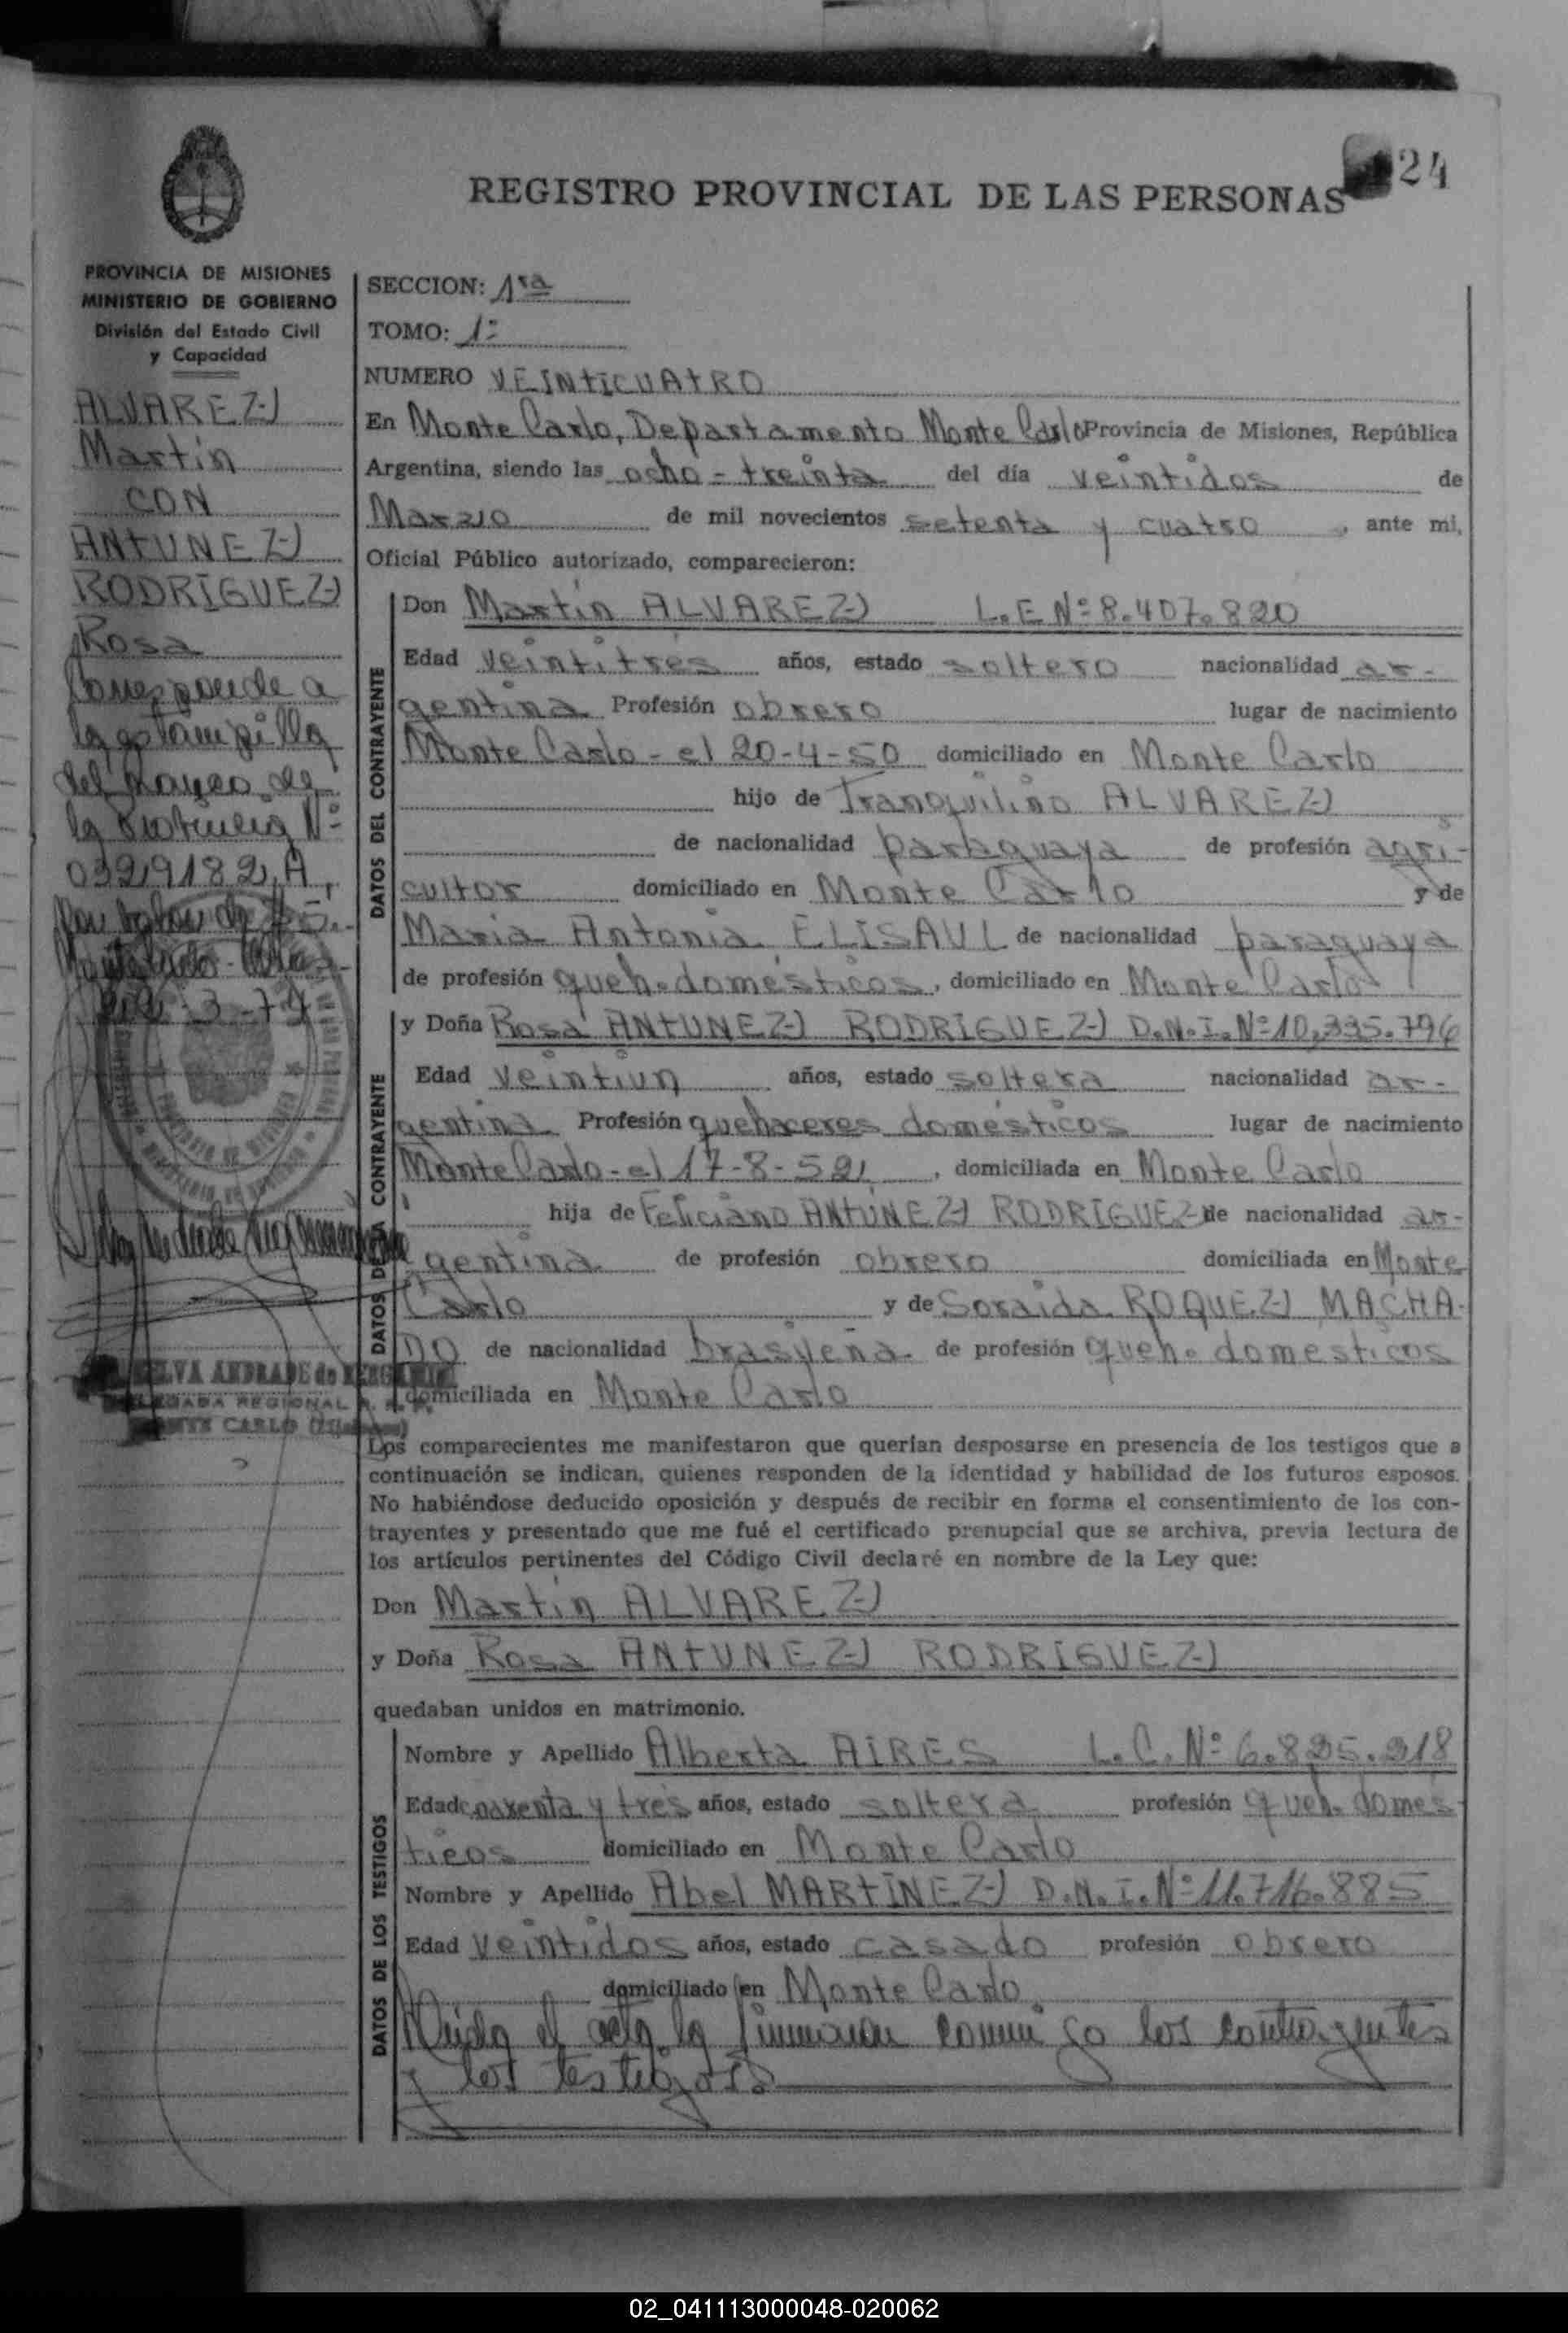 24
REGISTRO PROVINCIAL DE LAS PERSONAS
PROVINCIA DE MISIONES
MINISTERIO DE GOBIERNO
División del Estado Civil
y Capacidad
ALVAREZ
Martín
CON
ANTUNEZ
RODRIGUEZ
Rosa
Corresponde a
la estampilla
del
la Provincia Nº
03291821A,
por valor de $5.-
3-74
SILVA ANDRADE de
DELEGADA REGIONAL
MONTE CARLO (Misiones)
SECCION: 1ra
TOMO: 1º
NUMERO VEINTICUATRO
En Monte Carlo, Departamento Monte Carlo Provincia de Misiones, República
Argentina, siendo las ocho - treinta del día veintidos de
Marzo de mil novecientos setenta y cuatro, ante mi,
Oficial Público autorizado, comparecieron:
DATOS DEL CONTRAYENTE
Don Martín ALVAREZ L.E Nº 8.407.820
Edad veintitrés años, estado soltero nacionalidad ar-
gentina Profesión obrero lugar de nacimiento
Monte Carlo - el 20-4-50 domiciliado en Monte Carlo
hijo de Tranquilino ALVAREZ
de nacionalidad paraguaya de profesión agri-
cultor domiciliado en Monte Carlo y de
Maria Antonia ELISAUL de nacionalidad paraguaya
de profesión queh. domésticos, domiciliado en Monte Carlo
DATOS DE LA CONTRAYENTE
y Doña Rosa ANTUNEZ RODRIGUEZ D.N.I. Nº 10.335.796
Edad veintiun años, estado soltera nacionalidad ar-
gentina Profesión quehaceres domésticos lugar de nacimiento
Monte Carlo - el 17-8-52, domiciliada en Monte Carlo
hija de Feliciano ANTUNEZ RODRIGUEZ de nacionalidad ar-
gentina de profesión obrero domiciliada en Monte
Carlo y de Soraida ROQUEZ MACHA-
DO de nacionalidad brasileña de profesión queh. domesticos
domiciliada en Monte Carlo
Los comparecientes me manifestaron que querían desposarse en presencia de los testigos que a
continuación se indican, quienes responden de la identidad y habilidad de los futuros esposos.
No habiéndose deducido oposición y después de recibir en forma el consentimiento de los con-
trayentes y presentado que me fué el certificado prenupcial que se archiva, previa lectura de
los artículos pertinentes del Código Civil declaré en nombre de la Ley que:
Don Martín ALVAREZ
y Doña Rosa ANTUNEZ RODRIGUEZ
quedaban unidos en matrimonio.
DATOS DE LOS TESTIGOS
Nombre y Apellido Alberta AIRES L.C. Nº 6.825.218
Edad cuarenta y tres años, estado soltera profesión queh. domes-
ticos domiciliado en Monte Carlo
Nombre y Apellido Abel MARTINEZ D.N.I. Nº 11.716.885
Edad veintidos años, estado casado profesión obrero
domiciliado en Monte Carlo
Leida el acta la firmaron conmigo los contrayentes
y los testigos
02_041113000048-020062